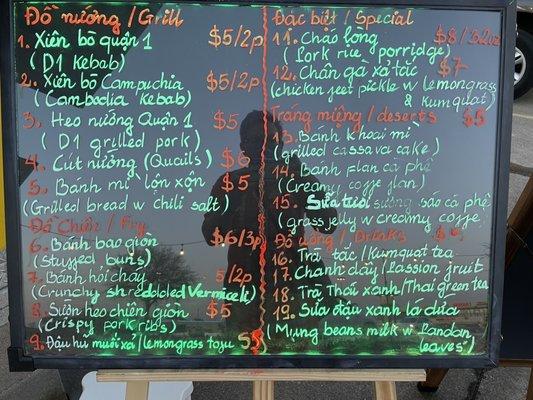 Đồ nướng / Grill
1. Xiên bò quận 1 $5/2p
(D1 Kebab)
2. Xiên bò Campuchia $5/2p
(Cambodia Kebab)
3. Heo nướng Quận 1 $5
(D1 grilled pork)
4. Cút nướng (Quails) $6
5. Bánh mì lộn xộn $5
(Grilled bread w chili salt)
Đồ Chiên / Fry
6. Bánh bao giòn $6/3p
(stuffed buns)
7. Bánh hỏi cháy 5/2p
(Crunchy shredded Vermicelli)
8. Sườn heo chiên giòn $5
(Crispy pork ribs)
9. Đậu hũ muối xả / lemongrass tofu $5
Đặc biệt / Special
11. Cháo lòng $8/32oz
(Pork rice porridge)
12. Chân gà xả tắc $7
(chicken feet pickle w lemongrass
& kumquat)
Tráng miệng / deserts $5
13. Bánh khoai mì
(grilled cassava cake)
14. Bánh plan cà phê
(Creamy coffe flan)
15. Sữa tươi sương sáo cà phê
(grass jelly w creamy coffe
Đồ uống / Drinks
16. Trà tắc / Kumquat tea
17. Chanh dây / Passion fruit
18. Trà Thái xanh / Thai green tea
19. Sữa đậu xanh lá dứa
(Mung beans milk w Pandan
leaves")